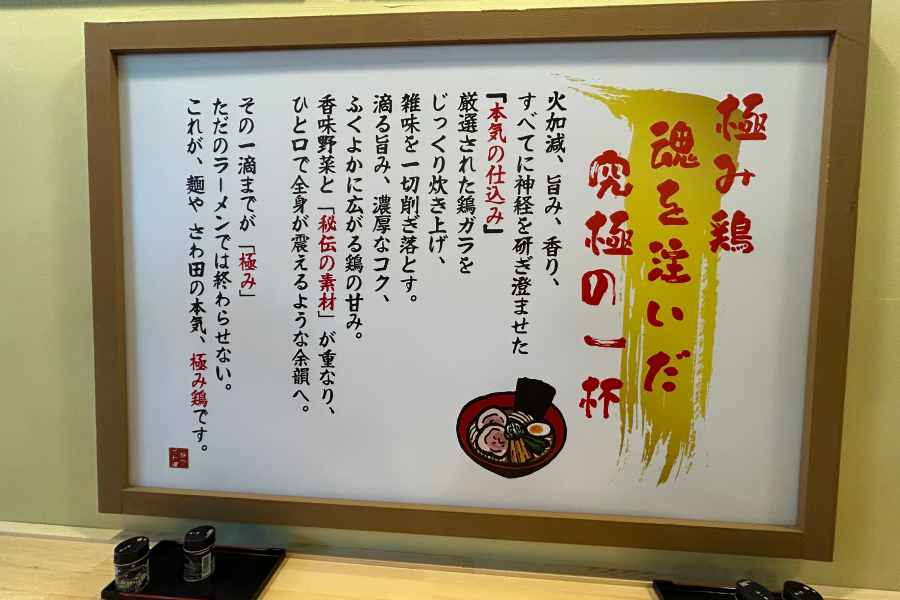 極み鶏
魂を注いだ
究極の一杯
火加減、旨み、香り、
すべてに神経を研ぎ澄ませた
『本気の仕込み』
厳選された鶏ガラを
じっくり炊き上げ、
雑味を一切削ぎ落とす。
滴る旨み、濃厚なコク、
ふくよかに広がる鶏の甘み。
香味野菜と「秘伝の素材」が重なり、
ひと口で全身が震えるような余韻へ。
その一滴までが「極み」
ただのラーメンでは終わらせない。
これが、麺や さわ田の本気、極み鶏です。